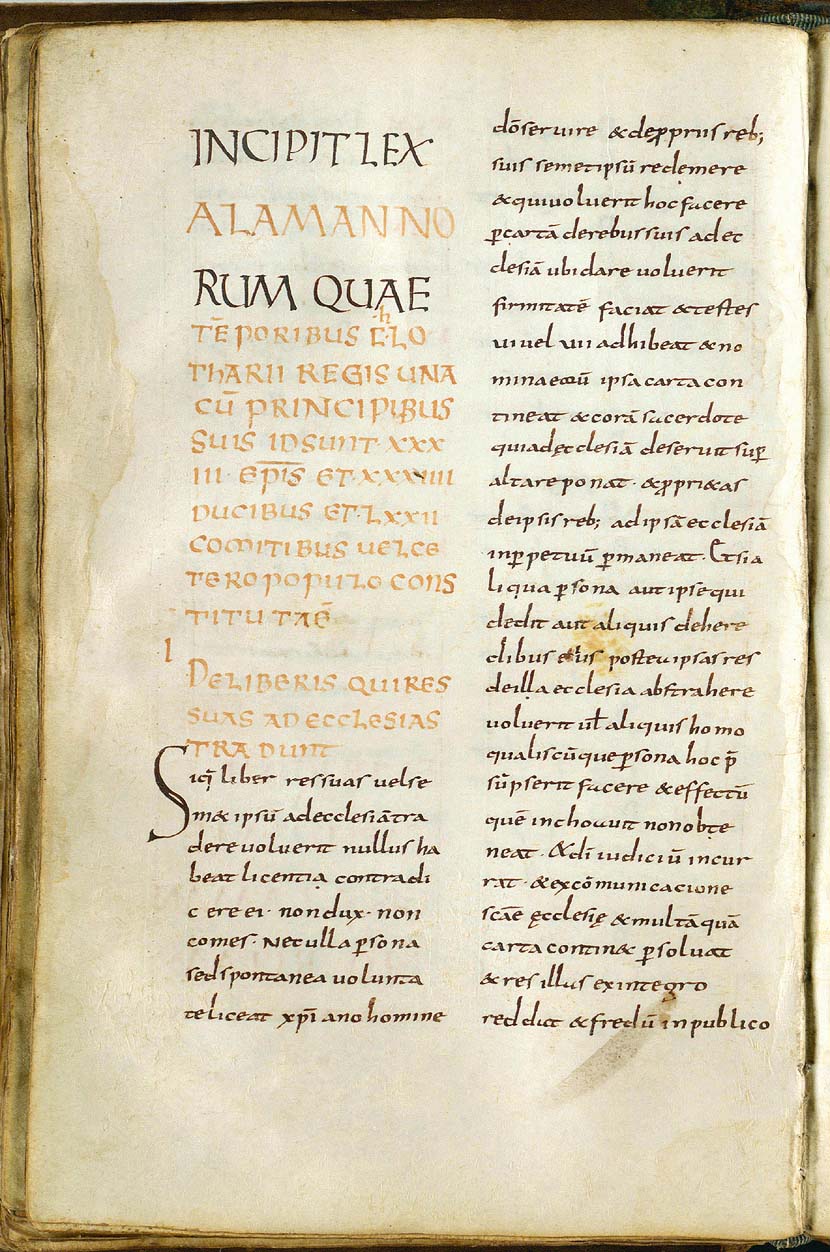 INCIPIT LEX
ALAMANNO
RUM QUAE
TẼPORIBUS CHLO
THARII REGIS UNA
CŪ PRINCIPIBUS
SUIS IDSUNT XXX
III EPĪS ET XXXIIII
DUCIBUS ET LXXII
COMITIBUS UEL CE
TERO POPULO CONS
TITUTA Ē
I
DE LIBERIS QUI RES
SUAS AD ECCLESIAS
TRADUNT
Siq̣ liber res suas uel se
m& ipsū ad ecclesiā tra
dere uoluerit nullus ha
beat licentiā contradi
cere ei· non dux· non
comes· Nec ulla ꝑsona
sed spontanea uolunta
te liceat xp̄iano homine
dō seruire & de ꝓpriis reb;
suis semetipsū redemere
& qui uoluerit hoc facere
ꝑ cartā de rebus suis ad ec
clesiā ubi dare uoluerit
firmitatē faciat & testes
vi vel vii adhibeat & no
mina eoru̅ ipsa carta con
tineat & corā sacerdote
qui ad ęcclesiā deseruit suꝑ
altare ponat· & ꝓpri&as
de ipsis reb; ad ipsā ecclesiā
in ꝑpetuū ꝑmaneat· Et si a
liqua ꝑsona aut ipse qui
dedit aut aliquis de here
dibus eius postea ipsas res
de illa ecclesia abstrahere
uoluerit ul̄ aliquis homo
qualiscūque ꝑsona hoc p̄
sūpserit facere & effectū
quē inchoauit non obte
neat· & dī iudiciū incur
rat· & excōmunicacione
scāe ęcclesię & multā quā
carta contin& ꝑsoluat
& res illas ex integro
reddat & fredū in publico